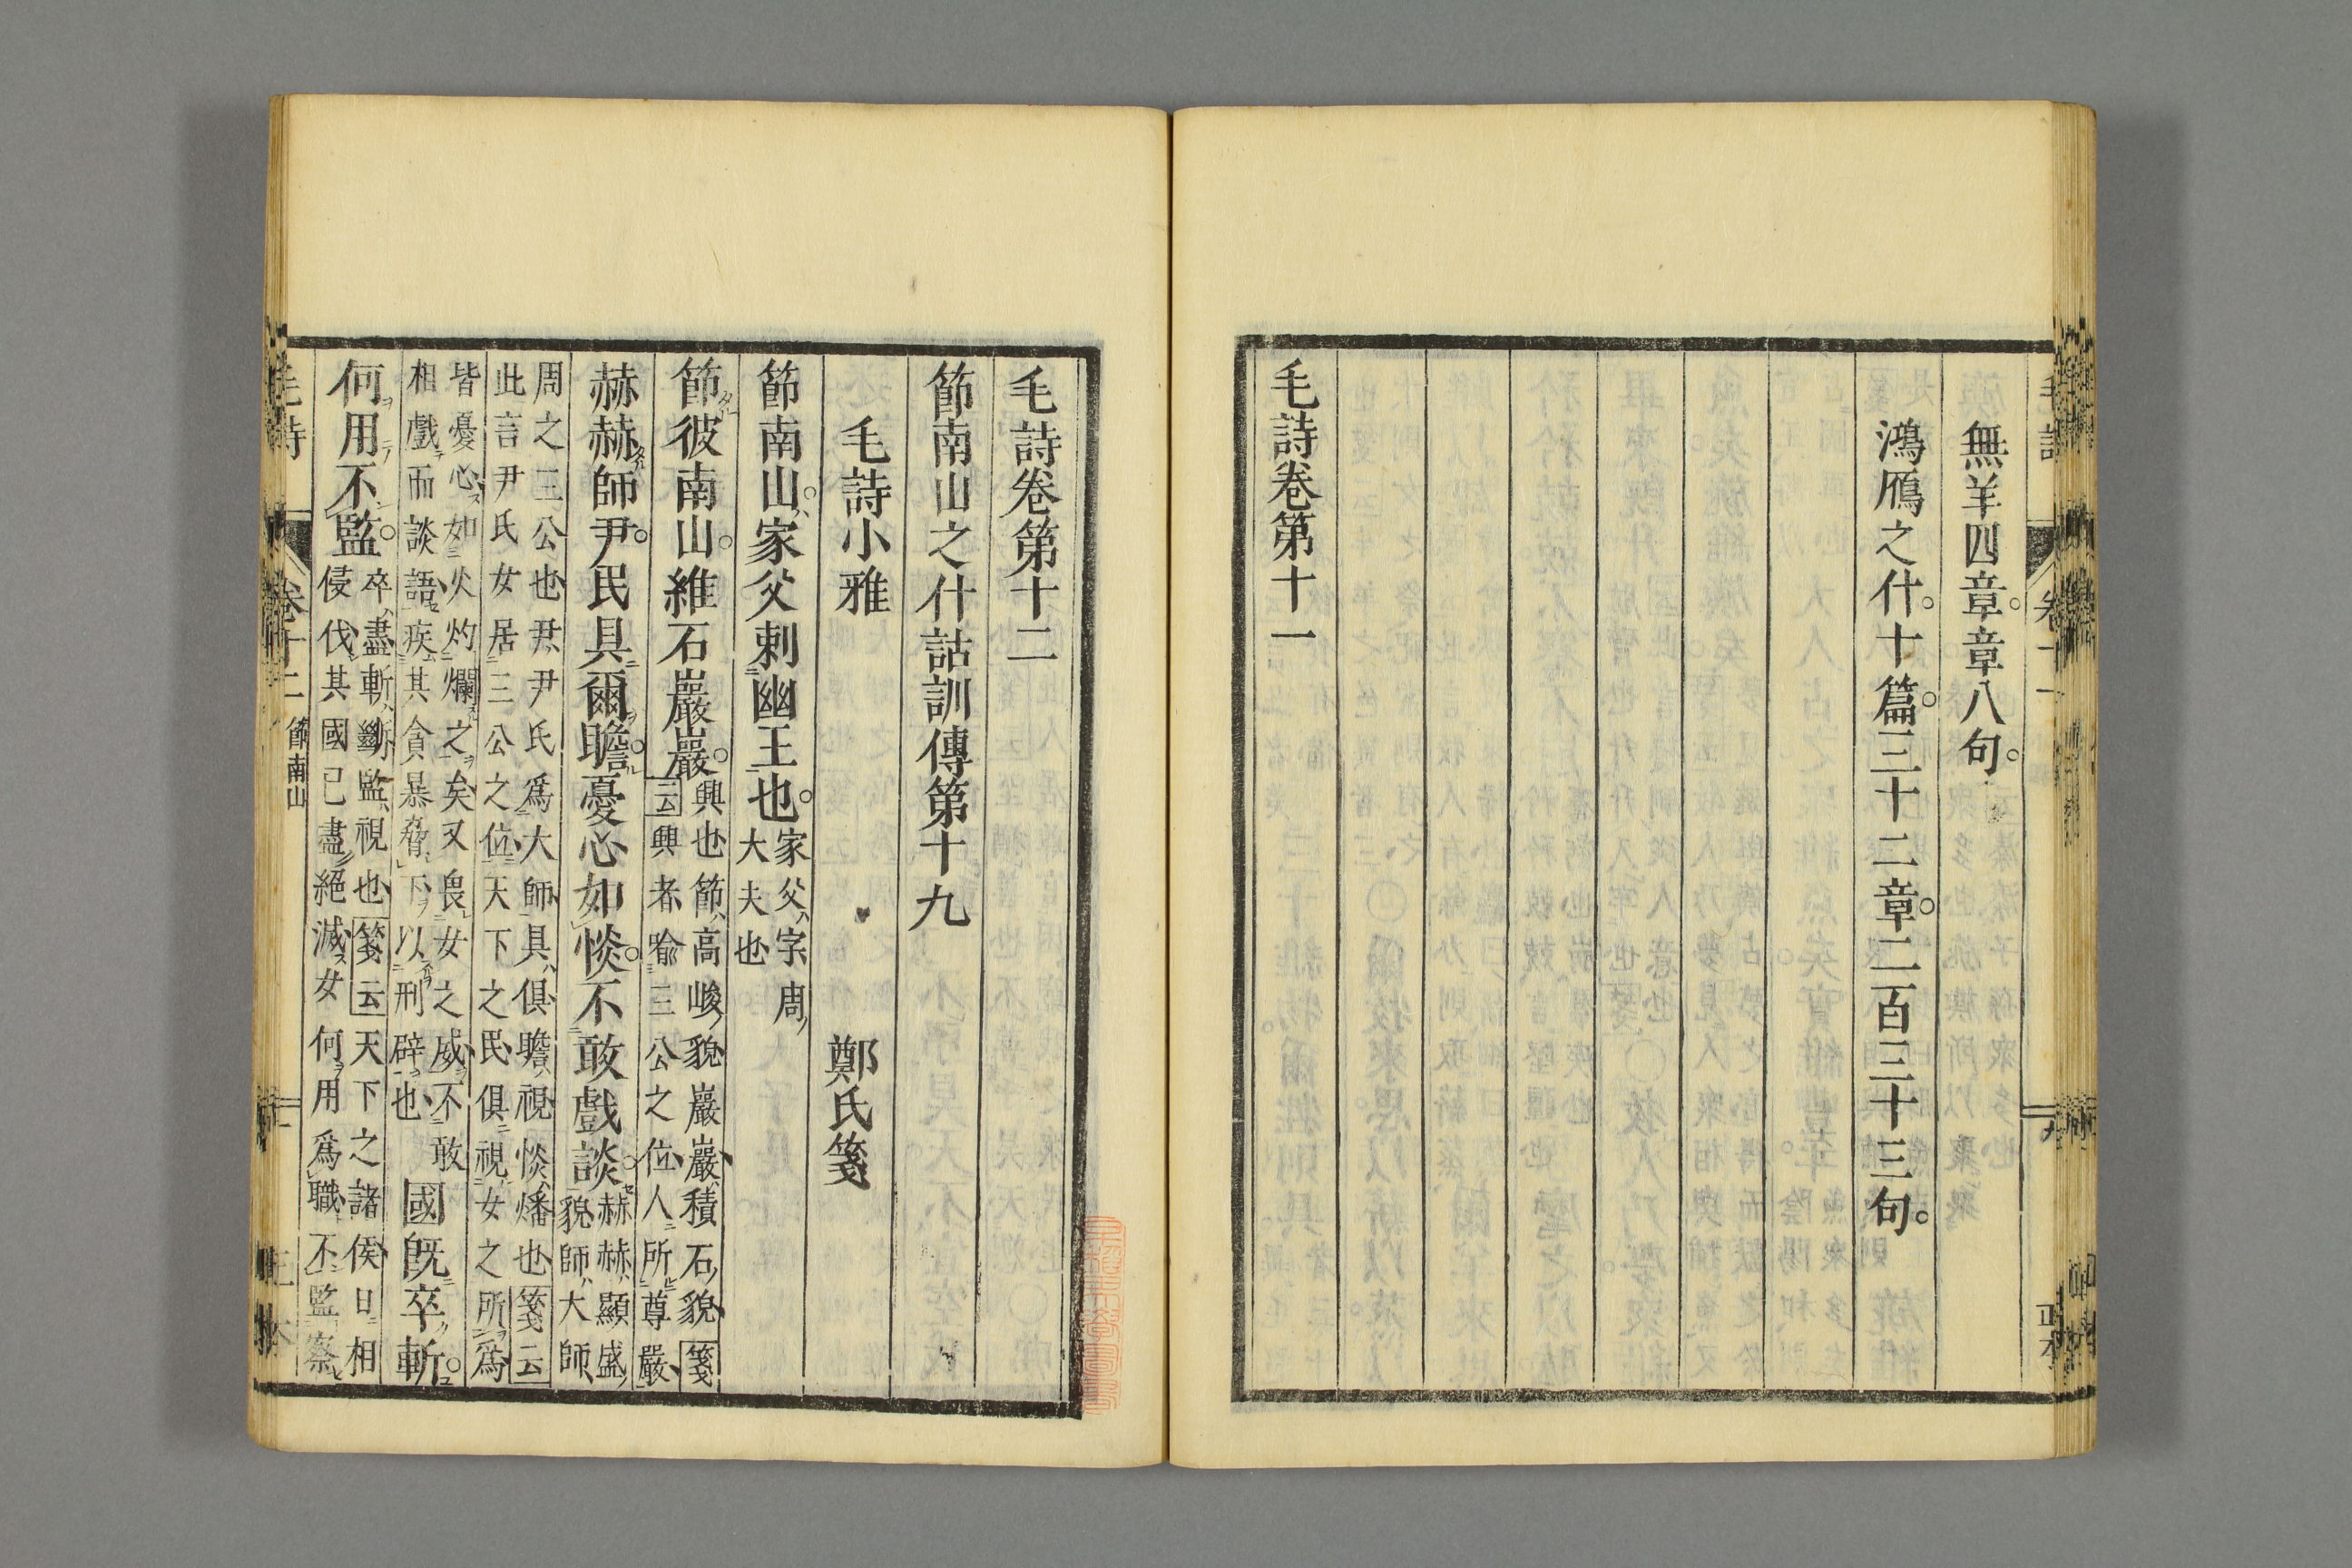 無羊四章章八句
鴻鴈之什十篇三十二章二百三十三句
毛詩卷第十一
毛詩卷第十二
節南山之什詁訓傳第十九
毛詩小雅 鄭氏箋
節南山家父刺幽王也家父字周
大夫也
節彼南山維石巖巖興也節高峻貌巖巖積石貌箋
云興者喻三公之位人所尊嚴
赫赫師尹民具爾瞻憂心如惔不敢戲談赫赫顯盛
貌師大師
周之三公也尹尹氏爲大師具俱瞻視惔燔也箋云
此言尹氏女居三公之位天下之民俱視女之所爲
皆憂心如火灼爛之矣又畏女之威不敢
相戲而談語疾其貪暴脅下以刑辟也
國既卒斬
何用不監卒盡斬斷監視也箋云天下之諸侯日相
侵伐其國已盡絕滅女何用爲職不監察
毛詩 卷十二 節南山